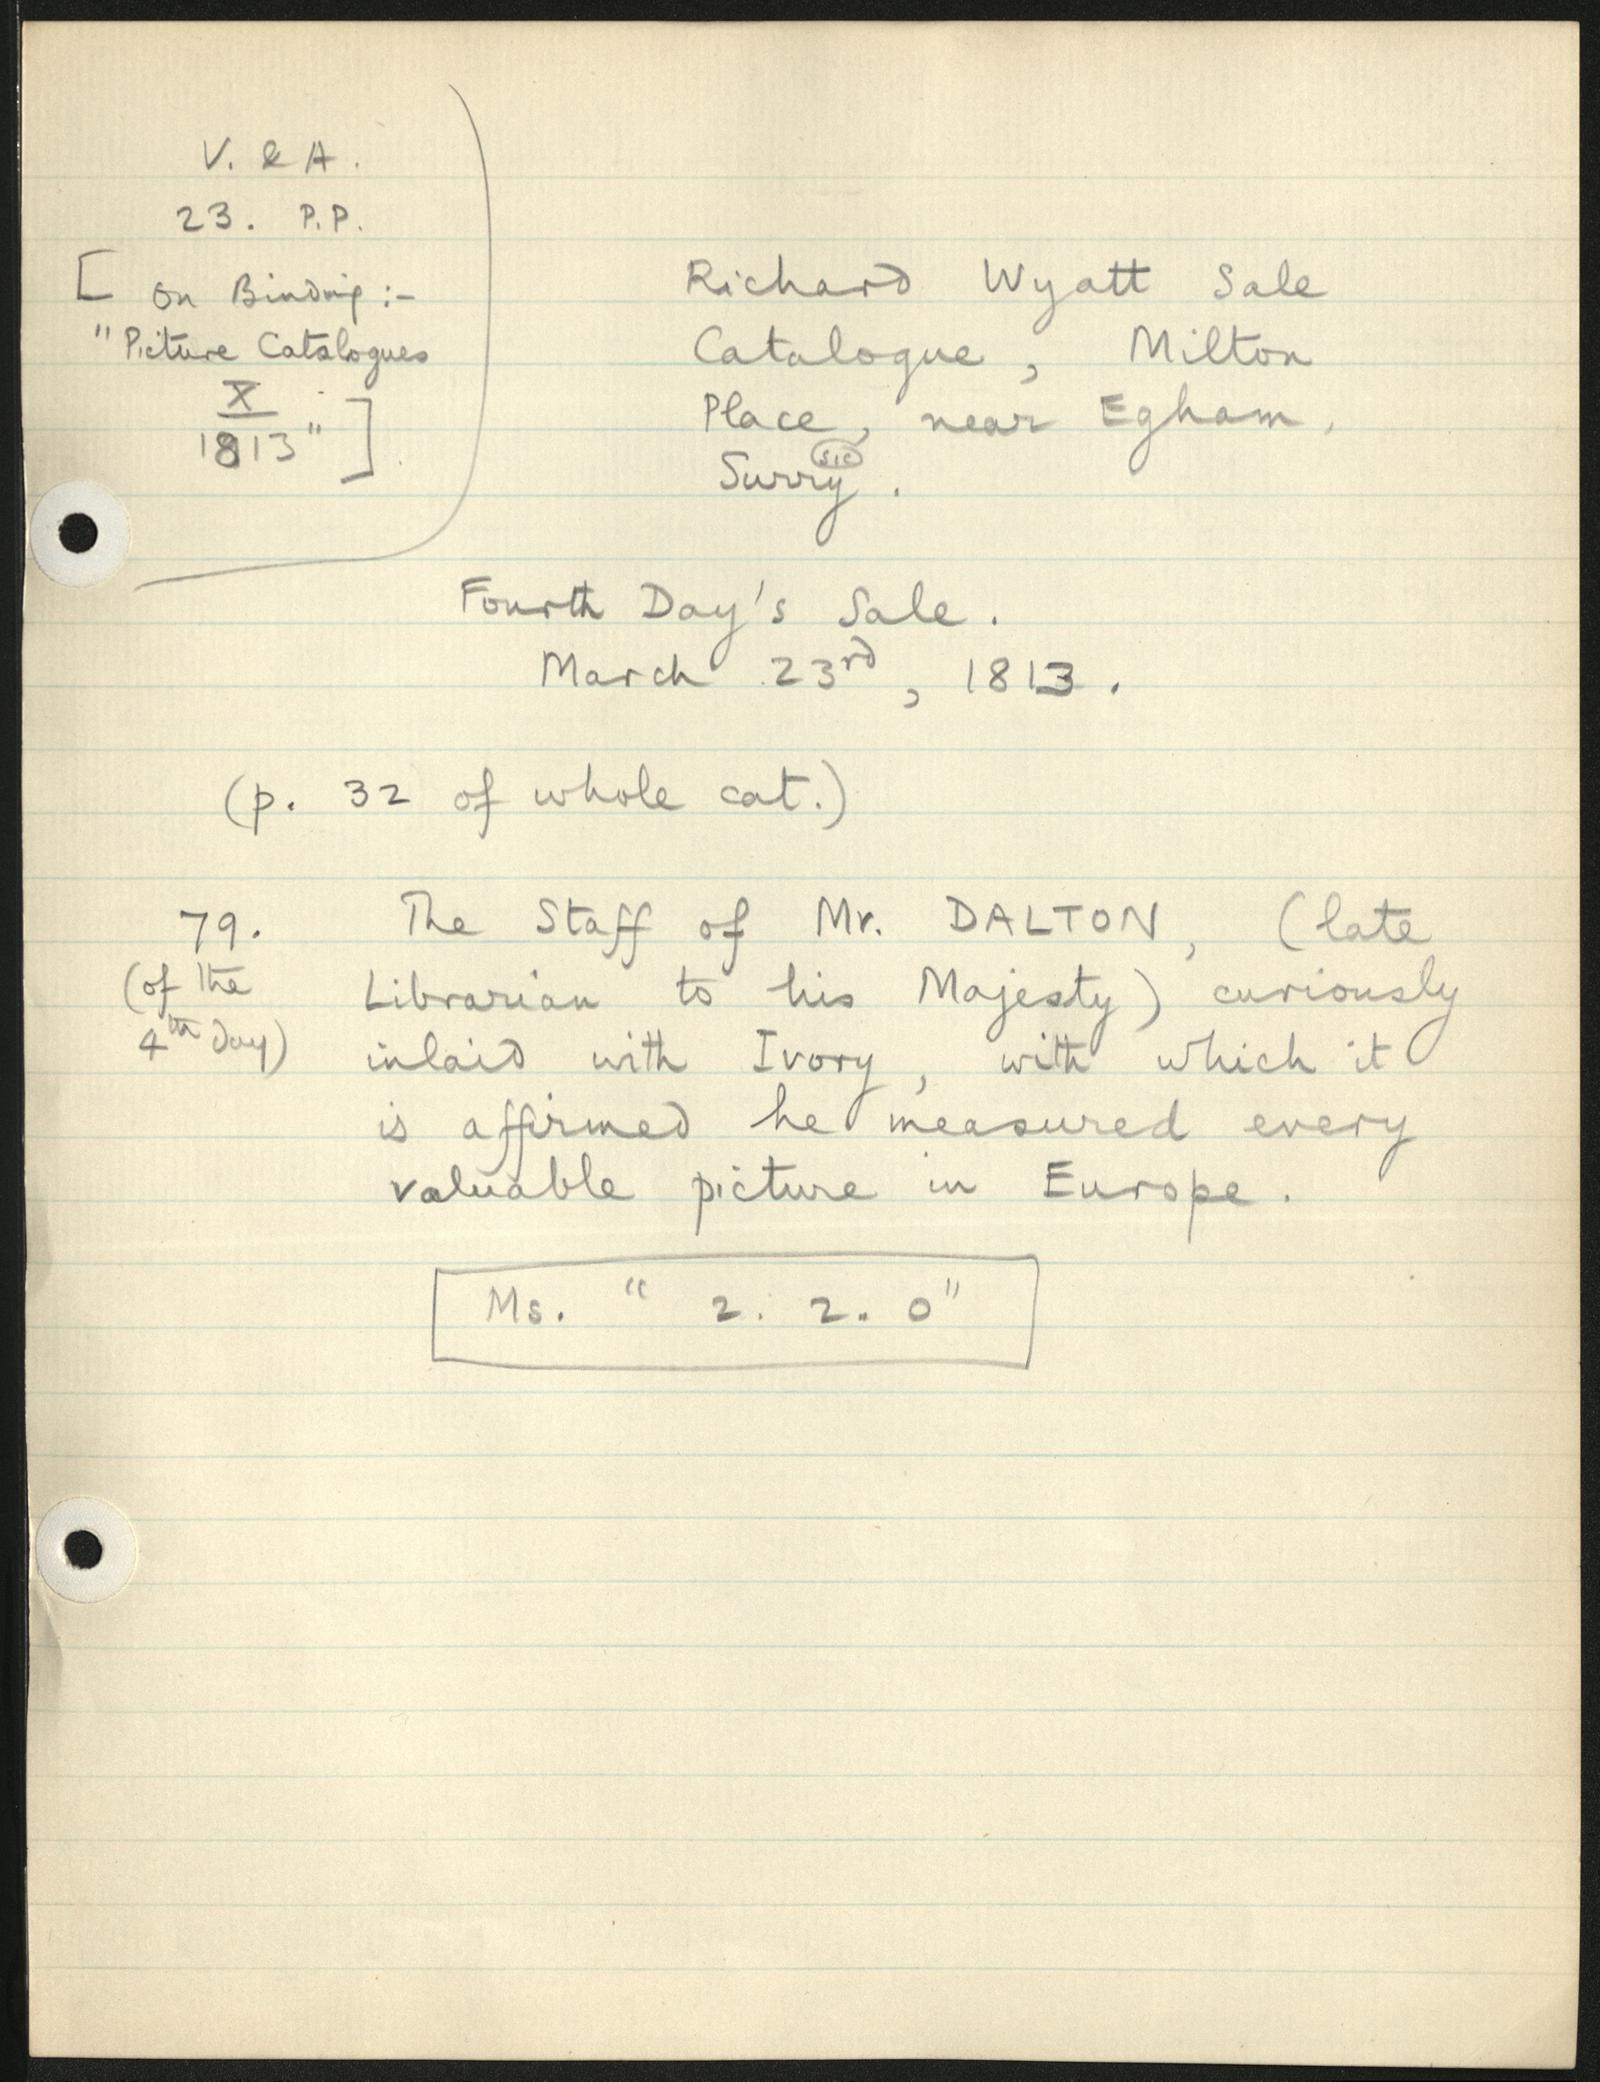 V. & A.
23. P.P.
[ On Binding :-
"Picture Catalogues
X
1813" ]
Richard Wyatt Sale
Catalogue, Milton
Place, near Egham,
Surry (sic).
Fourth Day's Sale.
March 23rd, 1813.
(p. 32 of whole cat.)
79. The Staff of Mr. DALTON, (late
(of the Librarian to his Majesty) curiously
4th day) inlaid with Ivory, with which it
is affirmed he measured every
valuable picture in Europe.
Ms. " 2. 2. 0"